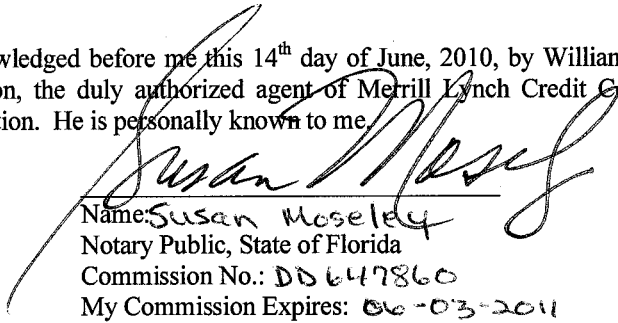 wledged before me this 14th day of June, 2010, by William
on, the duly authorized agent of Merrill Lynch Credit
tion. He is personally known to me.
Susan Mosely
Name: Susan Moseley
Notary Public, State of Florida
Commission No.: DD647860
My Commission Expires: 06-03-2011